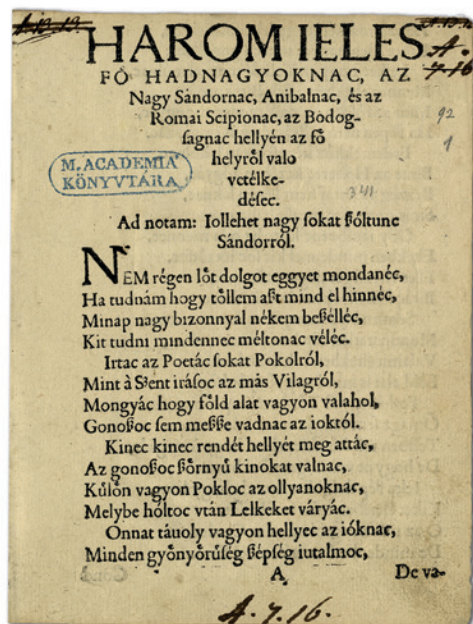 A.13.13.
HAROM IELES
FŐ HADNAGYOKNAC, AZ
A.
7.16
Nagy Sándornac, Anibalnac, és az
Romai Scipionac, az Bodog-
ſagnac hellyén az fő
helyről valo
vetélke-
déſec.
92
1
341
M. ACADEMIA
KÖNYVTÁRA
Ad notam: Iollehet nagy ſokat ßóltunc
Sándorról.
NEM régen lőt dolgot eggyet mondanéc,
Ha tudnám hogy tőllem aßt mind el hinnéc,
Minap nagy bizonnyal nékem beßélléc,
Kit tudni mindennec méltonac véléc.
Irtac az Poetác ſokat Pokolról,
Mint à Sʒent iráſoc az más Vilagról,
Mongyác hogy főld alat vagyon valahol,
Gonoßoc ſem meßße vadnac az ioktól.
Kinec kinec rendét hellyét meg attác,
Az gonoßoc ßőrnyű kinokat valnac,
Kűlőn vagyon Pokloc az ollyanoknac,
Melybe hóltoc vtán Lelkeket váryác.
Onnat táuoly vagyon hellyec az ióknac,
Minden győnyőrűſég ßépſég iutalmoc,
A
De va-
A.7.16.